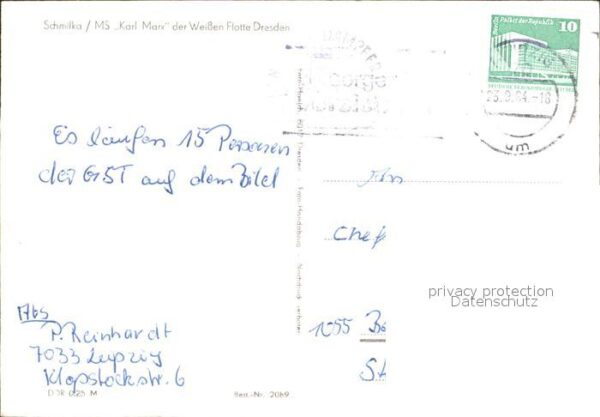 Schmilka / MS „Karl Marx" der Weißen Flotte Dresden
Palast der Republik
10
23.8.84.-18
um
Es laufen 15 Personen
der GST auf dem Bild
An
Chef
privacy protection
Datenschutz
1055 Be
St
P. Reinhardt
7033 Leipzig
Klopstockstr. 6
DDR 0,25 M
Best.-Nr. 2089